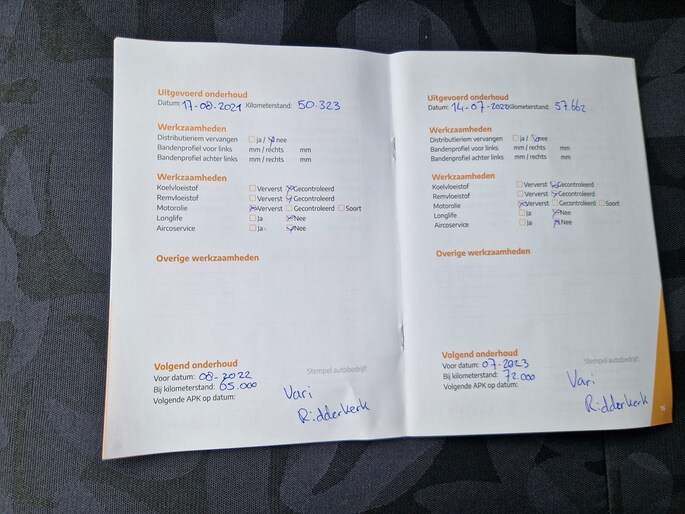 Uitgevoerd onderhoud
Datum: 17-08-2021 Kilometerstand: 50.323
Werkzaamheden
Distributieriem vervangen ja / nee
Bandenprofiel voor links mm / rechts mm
Bandenprofiel achter links mm / rechts mm
Werkzaamheden
Koelvloeistof Ververst Gecontroleerd
Remvloeistof Ververst Gecontroleerd
Motorolie Ververst Gecontroleerd Soort
Longlife Ja Nee
Aircoservice Ja Nee
Overige werkzaamheden
Volgend onderhoud
Stempel autobedrijf:
Voor datum: 08-2022
Bij kilometerstand: 65.000
Volgende APK op datum:
Vari
Ridderkerk
Uitgevoerd onderhoud
Datum: 14-07-2022 Kilometerstand: 57.662
Werkzaamheden
Distributieriem vervangen ja / nee
Bandenprofiel voor links mm / rechts mm
Bandenprofiel achter links mm / rechts mm
Werkzaamheden
Koelvloeistof Ververst Gecontroleerd
Remvloeistof Ververst Gecontroleerd
Motorolie Ververst Gecontroleerd Soort
Longlife Ja Nee
Aircoservice Ja Nee
Overige werkzaamheden
Volgend onderhoud
Stempel autobedrijf:
Voor datum: 07-2023
Bij kilometerstand: 72.000
Volgende APK op datum:
Vari
Ridderkerk